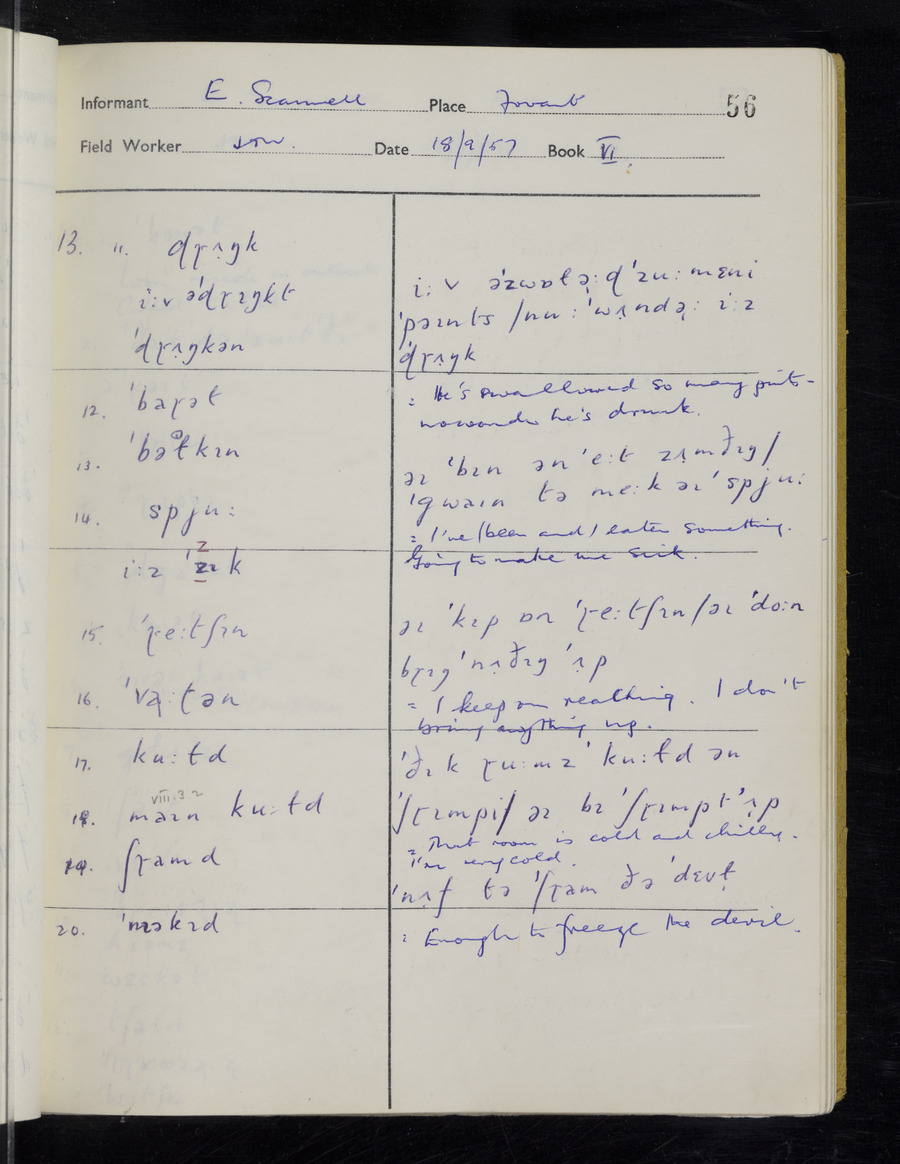 Informant E. Scannell Place Fovant 56
Field Worker Date 18/9/57 Book VI
13. ". dɽʌŋk
i:v ə'dɽɪŋkt
'dɽʌŋkən
i:v ə'zwɒɫəɽd 'zu: mɛni
'pəɪnts /nu: 'wʌndəɽ i:z
'dɽʌŋk
= He's swallowed so many pints -
nowonder he's drunk.
12. 'baɽəɫ
13. 'bəɫkɪn
14. spju:
əɪ 'bɪn ən 'e:t zʌmðɪŋ/
'gwaɪn tə me:k əɪ 'spju:
= I've (been and) eaten something.
Going to make me sick.
i:z 'zɪk
15. 'ɽe:tʃɪn
16. 'vəɽ:tən
əɪ 'kɪp ɒn 'ɽe:tʃɪn/əɪ 'do:n
bɽɪŋ 'nʌðɪŋ 'ʌp
= I keep on reaching. I don't
bring anything up.
17. ku:ɫd
VIII.3.2
18. məɪn ku:ɫd
19. ʃɽamd
'ðɪk ɽu:mz 'ku:ɫd ən
'ʃɽɪmpi/ əɪ bɪ 'ʃɽɪmpt 'ʌp
= That room is cold and chilly.
I'm very cold.
'nʌf tə 'ʃɽam ðə 'devɫ
20. 'nɪəkɪd
= Enough to freeze the devil.